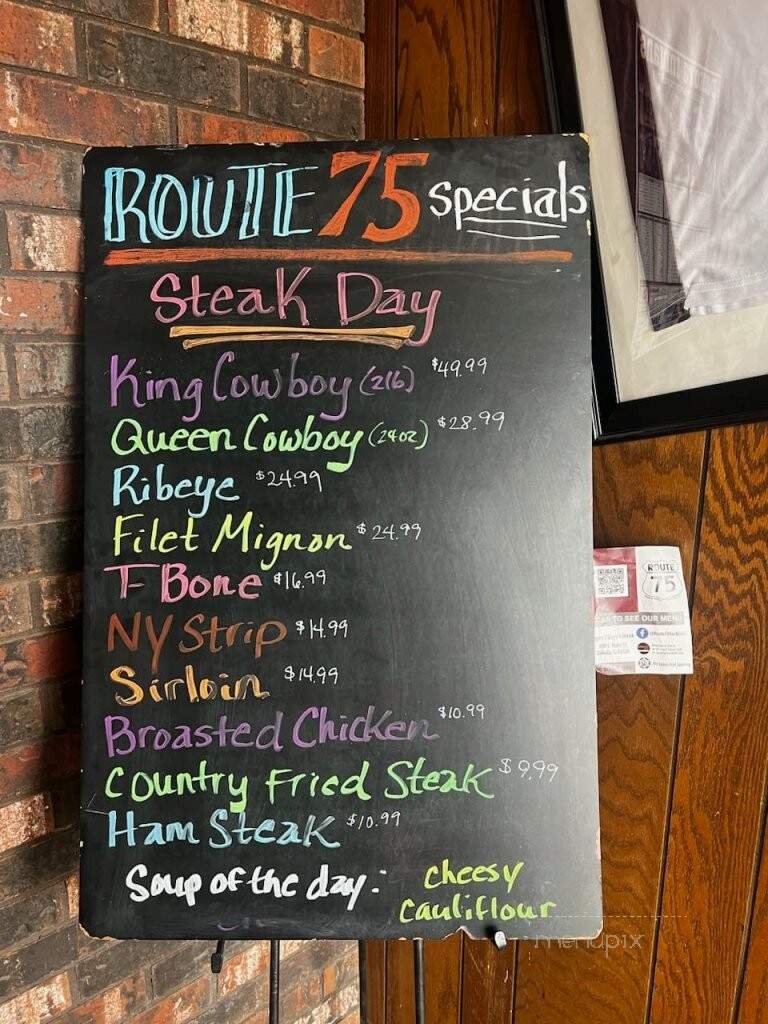 ROUTE 75 specials
Steak Day
King Cowboy (2lb) $49.99
Queen Cowboy (24oz) $28.99
Ribeye $24.99
Filet Mignon $24.99
T-Bone $16.99
NY Strip $14.99
Sirloin $14.99
Broasted Chicken $10.99
Country Fried Steak $9.99
Ham Steak $10.99
Soup of the day: cheesy
cauliflour
ROUTE
75
TO SEE OUR MENU
menupix